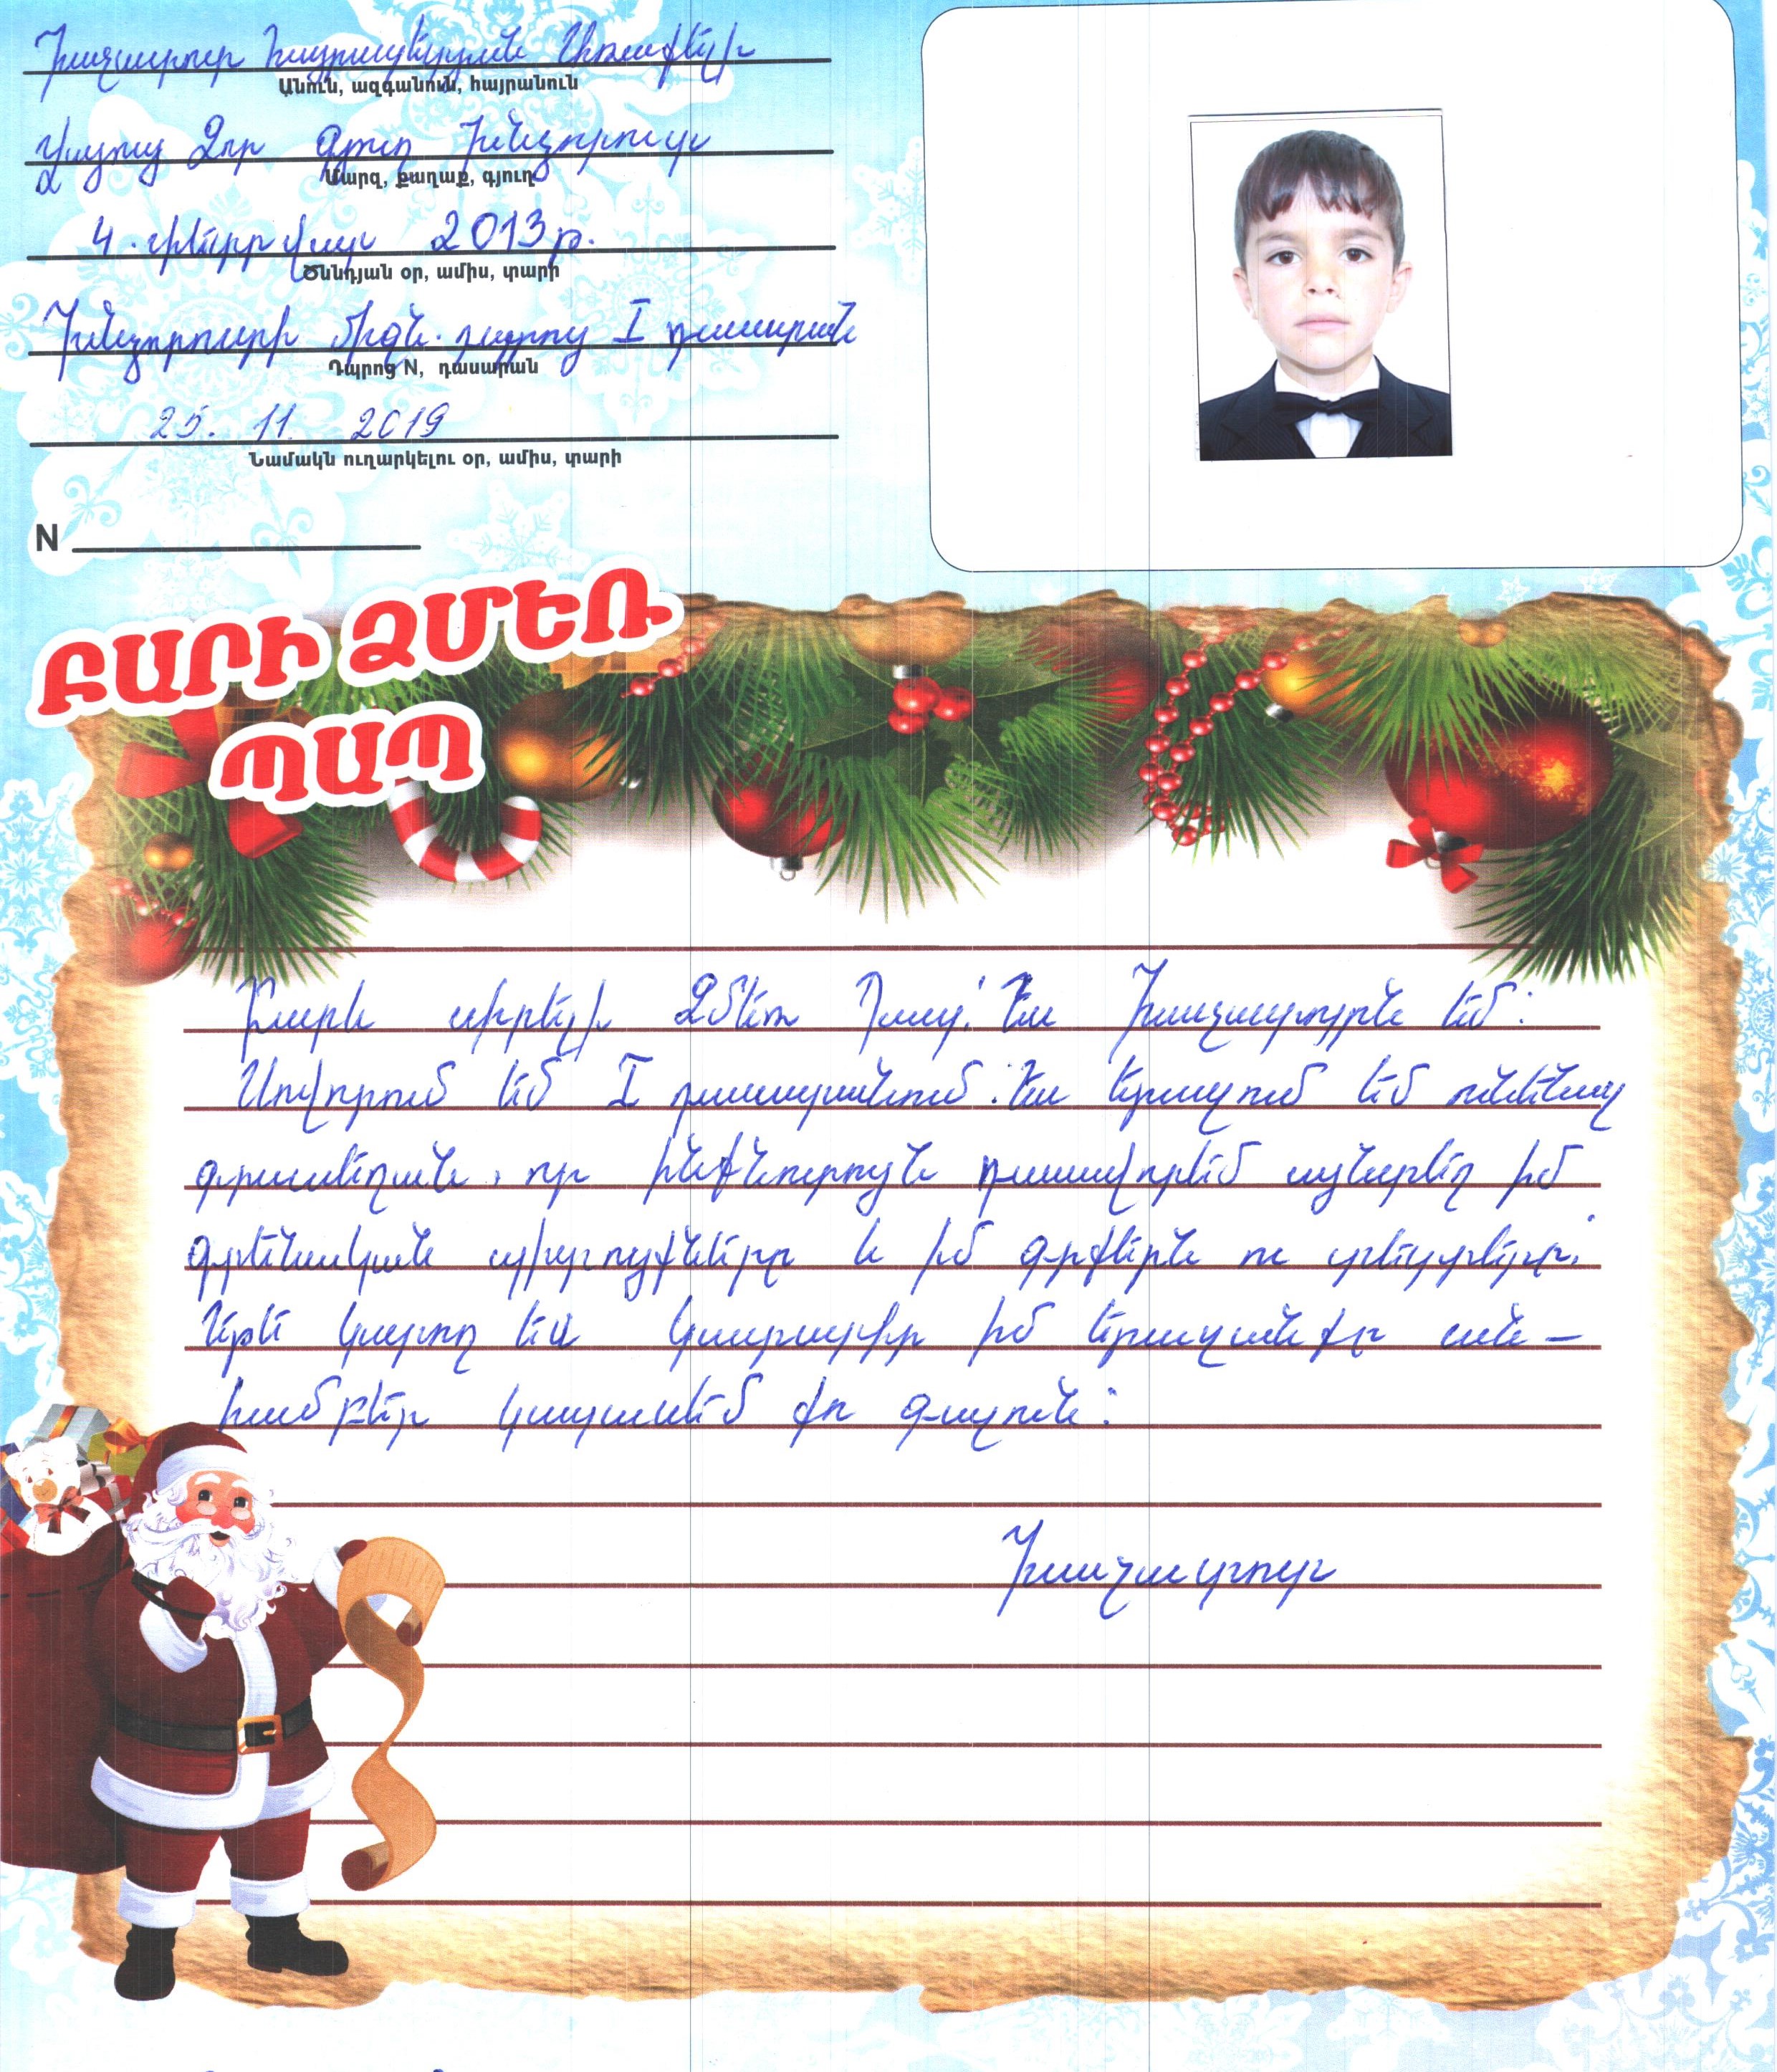 Խաչատուր Հայրապետյան Առաքելի
Անուն, ազգանուն, հայրանուն
Վայոց Ձոր Գյուղ Խնձորուտ
Մարզ, քաղաք, գյուղ
4. փետրվար 2013թ.
Ծննդյան օր, ամիս, տարի
Խնձորուտի միջն. դպրոց I դասարան
Դպրոց N, դասարան
25. 11. 2019
Նամակն ուղարկելու օր, ամիս, տարի
N
ԲԱՐԻ ՁՄԵՌ
ՊԱՊ
Բարև սիրելի Ձմեռ Պապ: Ես Խաչատուրն եմ:
Սովորում եմ I դասարանում: Ես երազում եմ ունենալ
գրասեղան, որ ինքնուրույն դասավորեմ այնտեղ իմ
գրենական պիտույքները և իմ գրքերն ու տետրերը:
Եթե կարող ես կատարիր իմ երազանքը ան-
համբեր կսպասեմ քո գալուն:
Խաչատուր